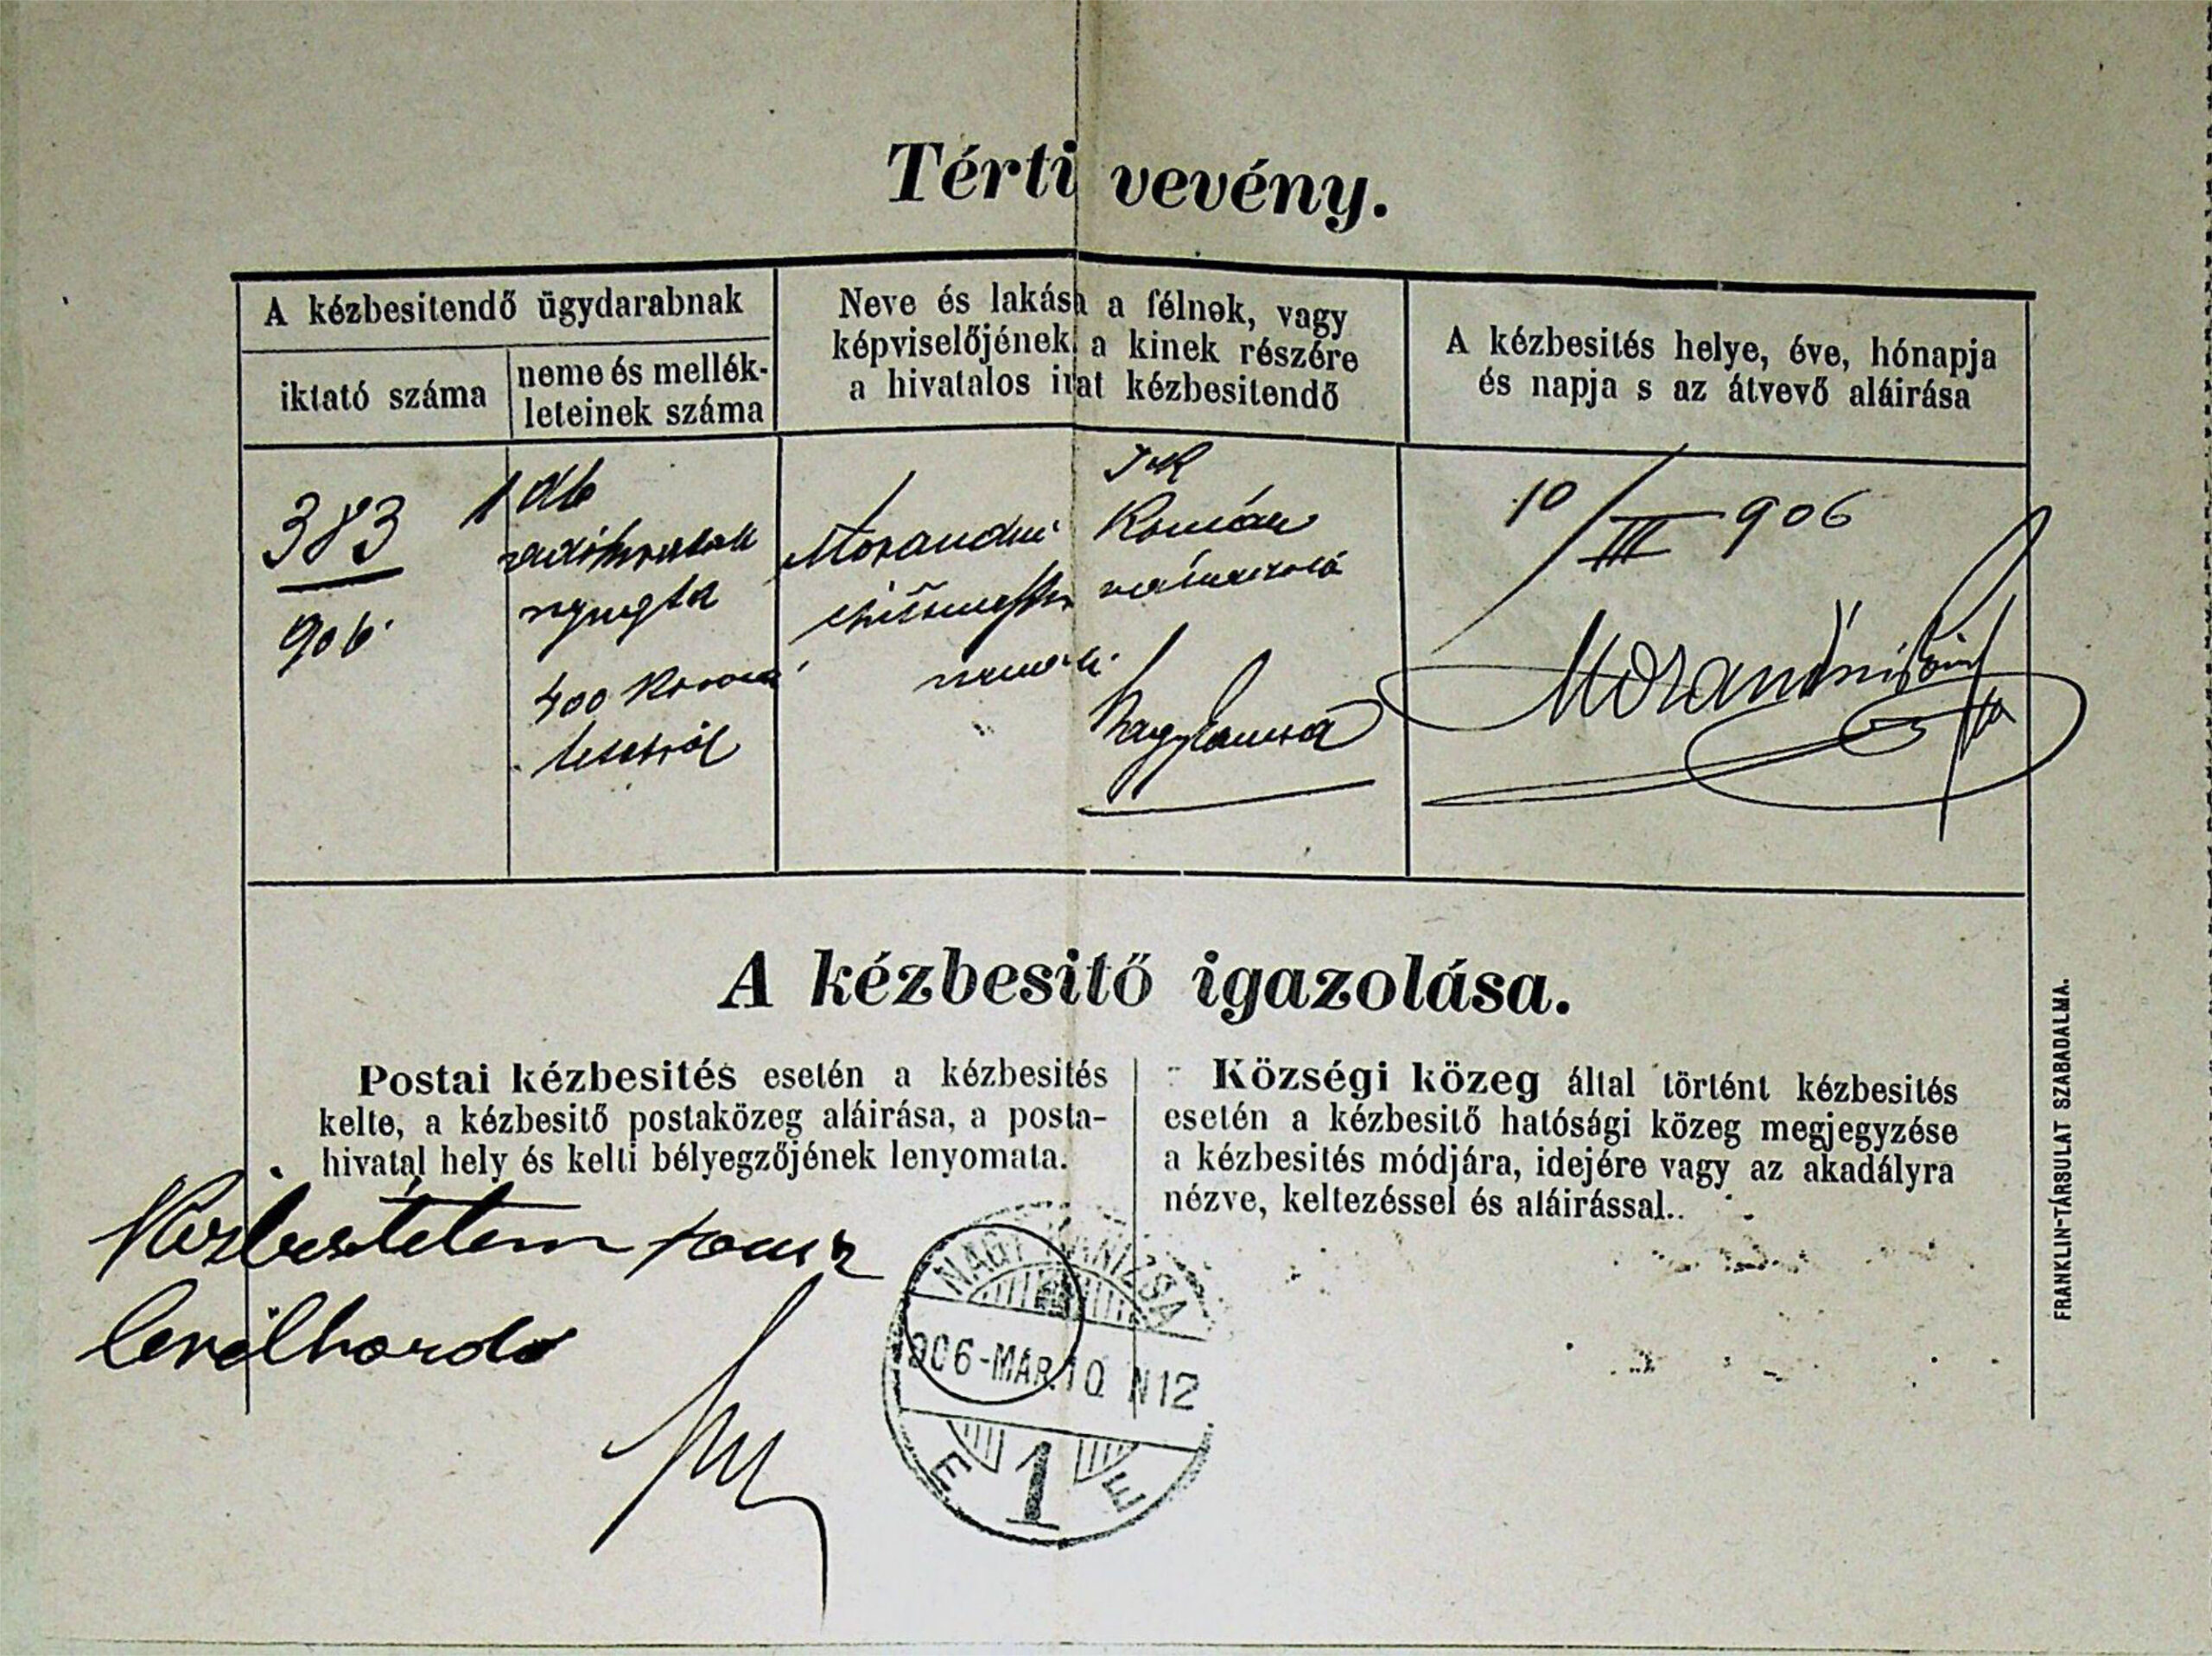 Térti vevény.
A kézbesitendő ügydarabnak
iktató száma
neme és mellék-
leteinek száma
Neve és lakása a félnek, vagy
képviselőjének, a kinek részére
a hivatalos irat kézbesitendő
A kézbesités helye, éve, hónapja
és napja s az átvevő aláirása
383
906
1 db
nyugta
400 korona
Morandini Román
Nagykanizsa
10/III 906
Morandini
A kézbesitő igazolása.
Postai kézbesités esetén a kézbesités
kelte, a kézbesitő postaközeg aláirása, a posta-
hivatal hely és kelti bélyegzőjének lenyomata.
Községi közeg által történt kézbesités
esetén a kézbesitő hatósági közeg megjegyzése
a kézbesités módjára, idejére vagy az akadályra
nézve, keltezéssel és aláirással.
Kézbesitetem
levélhordó
NAGY KANIZSA
906-MÁR.10 N12
E 1 E
FRANKLIN-TÁRSULAT SZABADALMA.